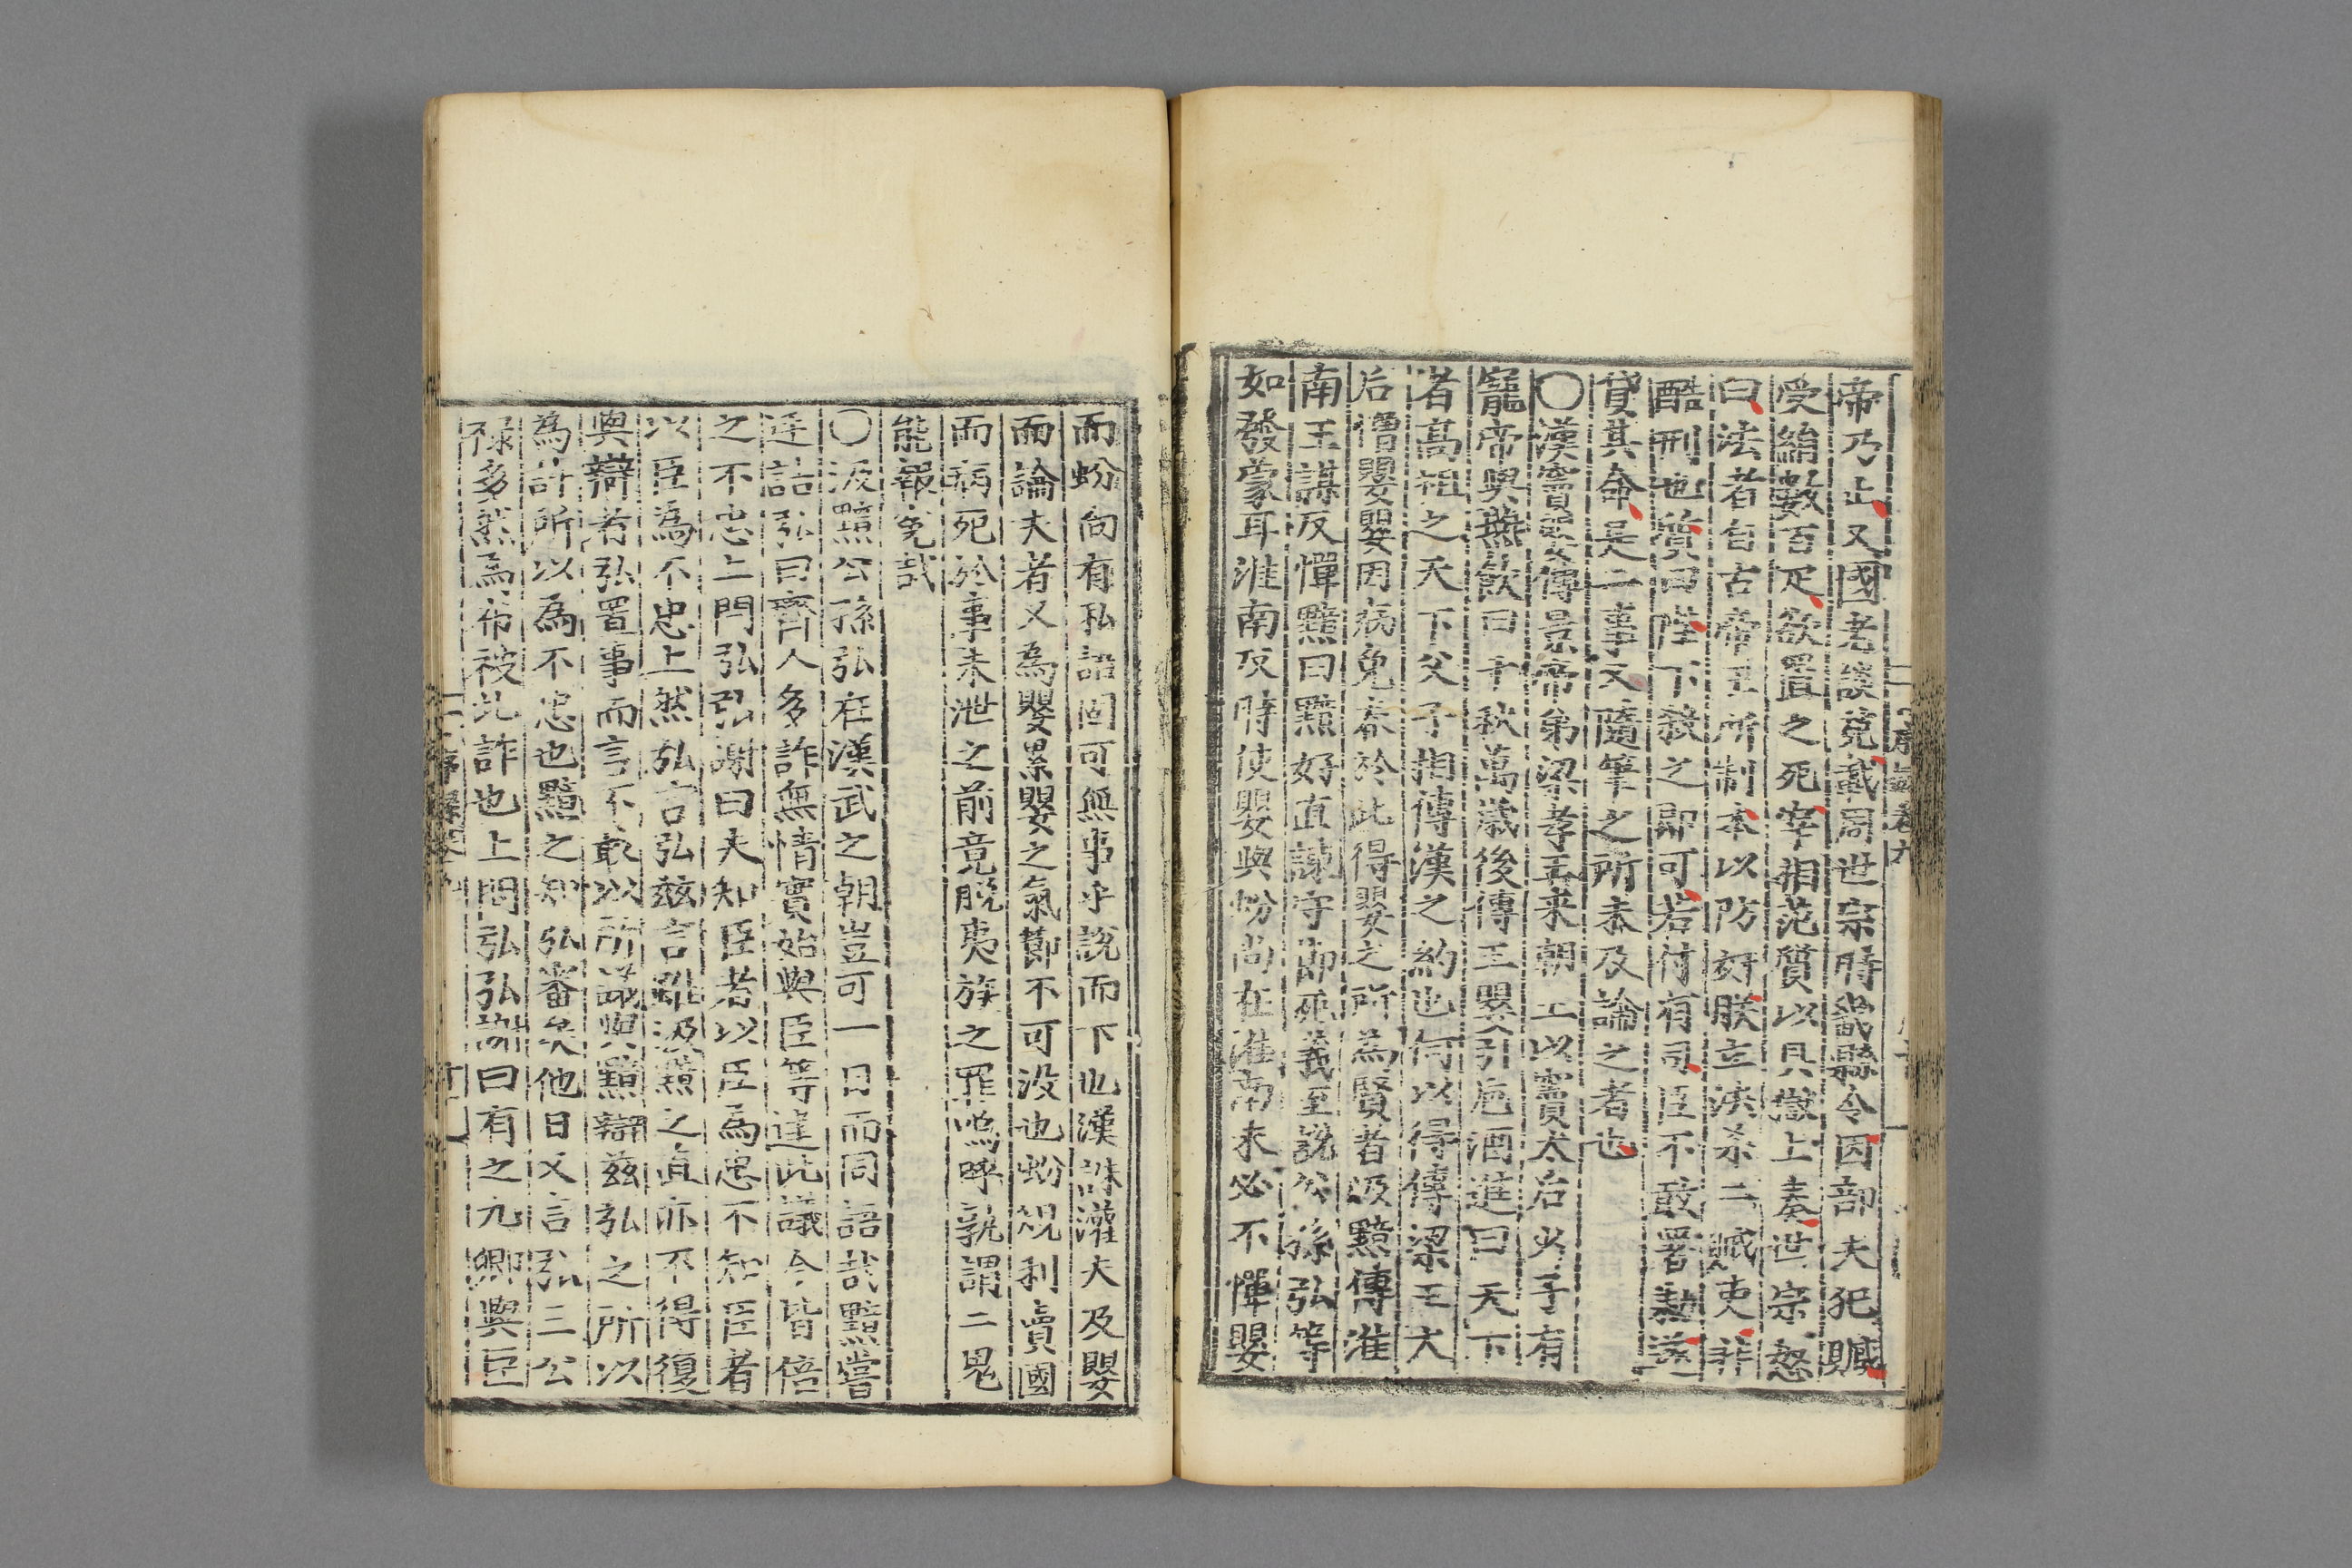 帝乃止又國老談竟載周世宗時畿縣令因部夫犯贓
受絹數百疋欲置之死宰相范質以具獄上奏世宗怒
曰法者自古帝王所制本以防奸朕立法杀二贓吏非
酷刑也質曰陛下殺之即可若付有司臣不敢署勑遂
貸其命吴二事又隨筆之所未及論之者也
○漢竇嬰傳景帝弟梁孝王来朝上以竇太后少子有
寵帝與燕飲曰千秋萬歲後傳王嬰引巵酒進曰天下
者高祖之天下父子相傳漢之約也何以得傳梁王大
后憎嬰嬰因病免夲於此得嬰之所為賢者汲黯傳淮
南王謀反憚黯曰黯好直諫守節死義至說公孫弘等
如發蒙耳淮南反時使嬰與蚡尚在淮南未必不憚嬰
而蚡向有私語固可無事乎說而下也漢誅灌夫及嬰
而論夫者又為嬰累嬰之氣節不可没也蚡規利賣國
而病死於事未泄之前竟脱夷族之罪嗚呼孰謂二鬼
能報寃哉
○汲黯公孫弘在漢武之朝豈可一日而同語哉黯嘗
廷詰弘曰齊人多詐無情實始與臣等建此議今皆倍
之不忠上問弘弘謝曰夫知臣者以臣爲忠不知臣者
以臣爲不忠上然弘言弘兹言雖汲黯之直亦不得復
與辯若弘置事而言不敢以所議與黯辯兹弘之所以
為計所以為不忠也黯之知弘審矣他日又言弘三公
禄多然爲布被此詐也上問弘弘謝曰有之九卿與臣